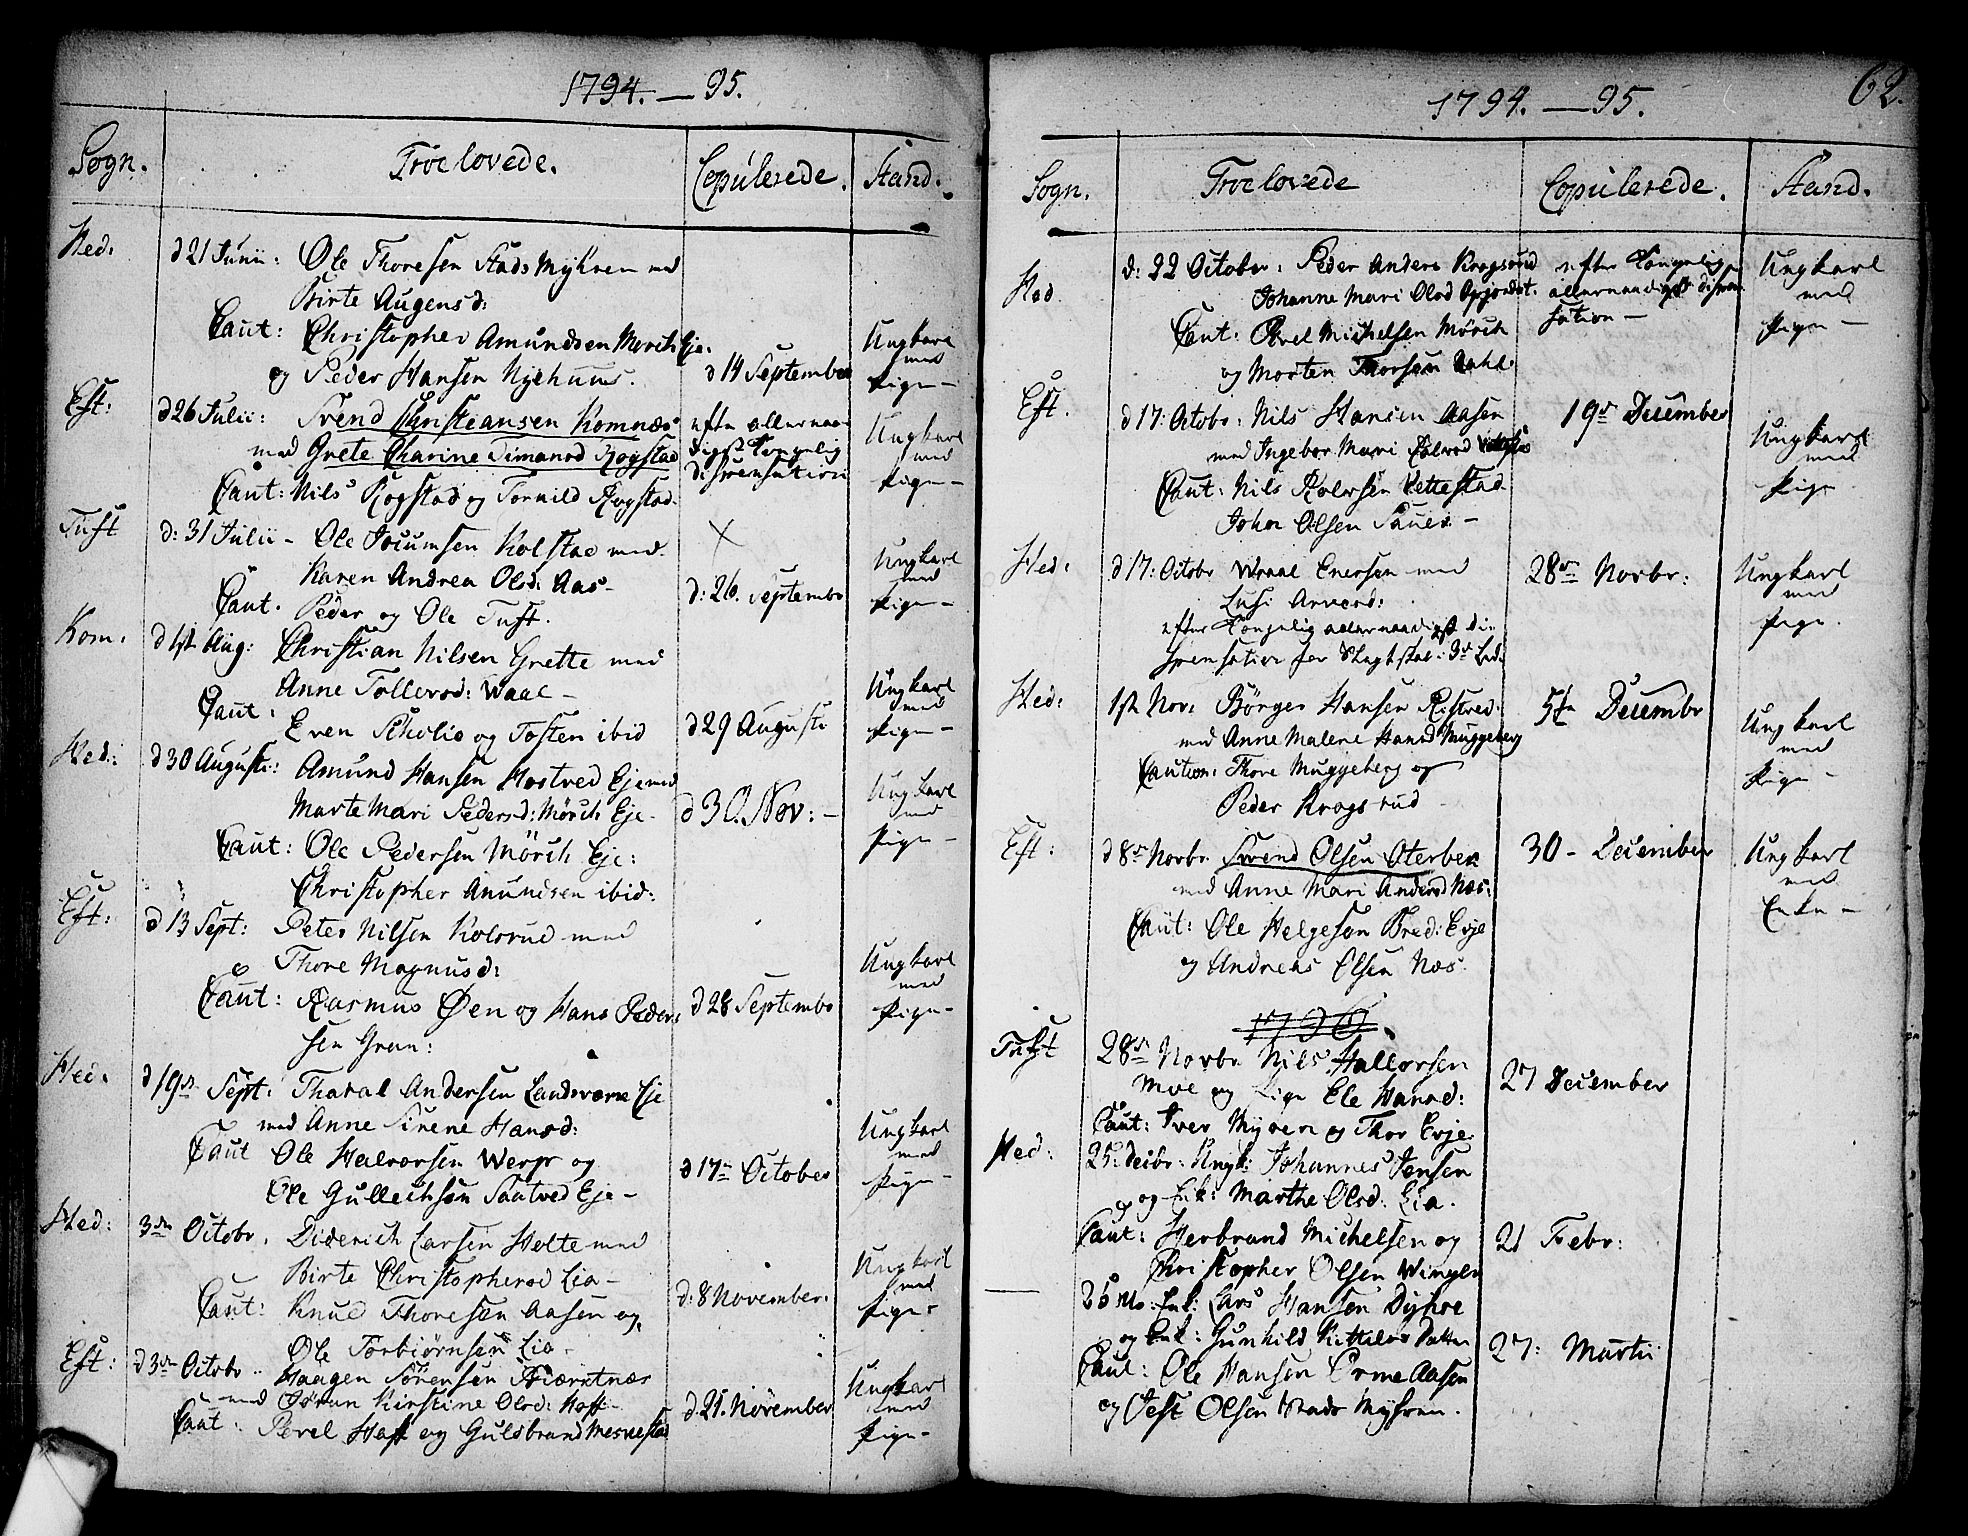 1794. — 95.
Sogn. Troelovede. Copulerede. Stand.
Hed: d 21 Junii: Ole Thoresen Stads Myhren med
Birte Augensd:
Caut: Christopher Amundsen Mørch Eje.
og Peder Hansen Nyehuus. d 14 September Ungkarl med Pige –
Eft: d 26 Julii: Svend Christiansen Komnæs
med Grete Charine Simansd Rogstad
Caut: Nils Rogstad og Tornild Rogstad.
efter allernaa-
digst Kongelig
dispensation
Ungkarl
med
Pige –
Tuft d: 31 Julii – Ole Jocumsen Kolstad med
Karen Andrea Olsd: Aas –
Caut. Peder og Ole Tuft.
d: 26. Septembr
Ungkarl
med
Pige –
Kom: d 1st Aug: Christian Nilsen Grette med
Anne Tollevsd: Waal –
Caut: Even Skolie og Tosten ibid
d 29 Augusti
Ungkarl
med
Pige –
Hed: d 30 Augusti: Amund Hansen Hostved Eje med
Marte Mari Pedersd: Mørch Eje –
Caut: Ole Pedersen Mörch Eje:
Christopher Amundsen ibid:
d 30. Nov: –
Ungkarl
med
Pige –
Eft: d 13 Sept: Peter Nilsen Kolsrud med
Thore Magnusd:
Caut: Rasmus Øen og Hans Peder-
sen Gran:
d 28 Septembr
Ungkarl
med
Pige –
Hed. d 19de Sept: Tharal Andersen Landsværk Eje
med Anne Sirene Hansd:
Caut Ole Halvorsen Werp og
Ole Gullichsen Saatved Eje –
d 17de October
Ungkarl
med
Pige –
Hed: 3de Octobr. Diderich Larsen Holte med
Birte Christophersd Lia –
Caut: Knud Thoresen Aasen og
Ole Torbiörnsen Lia –
d: 8 November.
Ungkarl
med
Pige
Eft: d 3de Octobr. Haagen Sørensen
med Jøran Kirstine Olsd: Hoff –
Caut: Povel Hoff og Gulbrand
d. 21. November
Ungkarl
med
Pige –
62.
1794. — 95.
Sogn. Troelovede Copulerede. Stand.
Hed d: 22 October: Peder Anders Kragsrud
Johanne Mari Olsd
Caut: Povel Michelsen Mörch
og Morten Thorsen Dahl.
efter Kongelig
allernaadigst dispen-
sation –
Ungkarl
med
Pige –
Eft. d 17: Octobr: Nils Hansen Aasen
med Ingebor Mari
Caut: Nils Rolvsen Vettestad
Johan Olsen Sauer –
19de December
Ungkarl
med
Pige
Hed: d 17: Octobr Wraal Enersen med
Lusi
efter Kongelig allernaadigst di-
spensation for Slegtskab: 3de Led:
28de Novbr:
Ungkarl
med
Pige.
Hed: 1st Nov: Börger Hansen
med Anne Malene Hansd Muggeberg
Caution: Thore Muggeberg og
Peder Kragsrud –
5te Decembr
Ungkarl
med
Pige –
Eft: d 8de Novbr Svend Olsen Oterbek
med Anne Mari Andersd Næs:
Caut: Ole Helgesen Bred: Eeje
og Andreas Olsen Næs.
30 – December
Ungkarl
med
Enke –
1796.
Tuft 28de Novbr Nils Hallorsen
Moe og Pige Ele Hansd:
Caut: Iver Myren og Thor Evje
27 December
Hed: 25: Decbr: Ungk: Johannes Jensen
og Enk: Marthe Olsd: Lia.
Caut: Herbrand Michelsen og
Christopher Olsen Wingen
21 Febr:
— 26 Enk: Lars Hansen Dyhre
og Enk: Gunhild Kittelsdatter
Caut: Ole Hansen Aasen
og Olsen Stads Myhren.
27: Martii